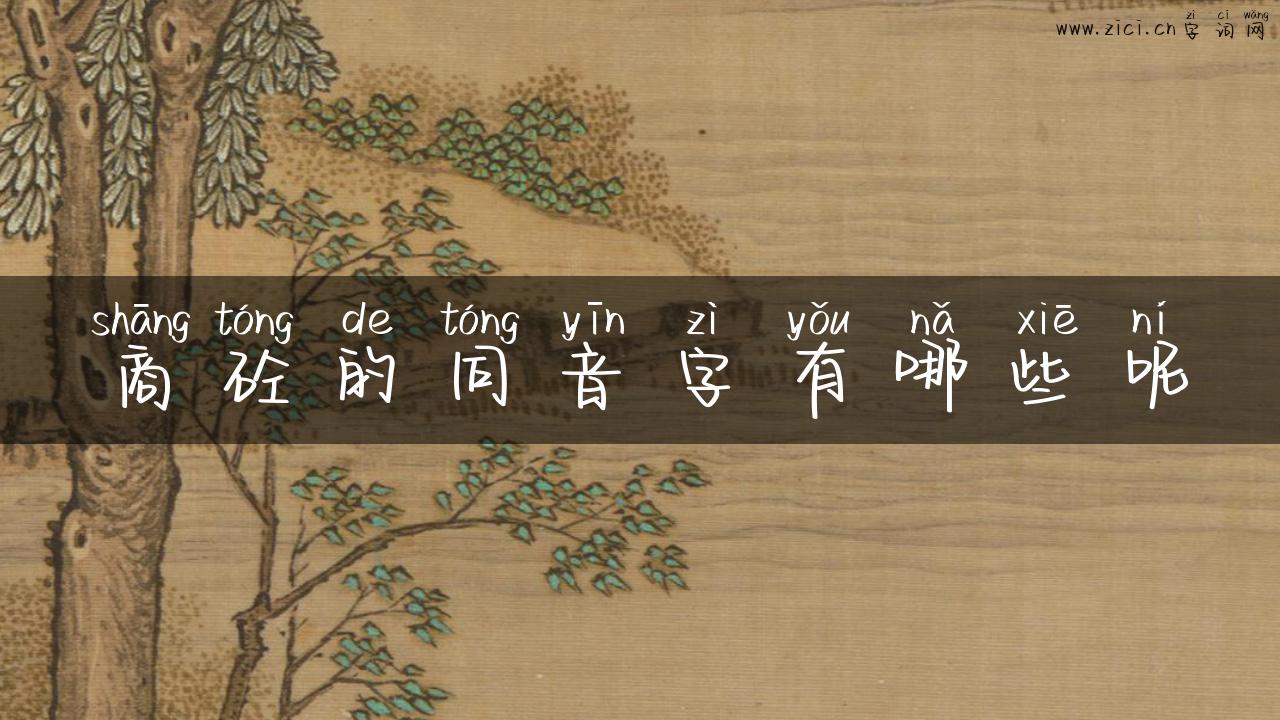 zì cí wǎng
www.zici.cn 字词网
shāng tóng de tóng yīn zì yǒu nǎ xiē ní
商砼的同音字有哪些呢